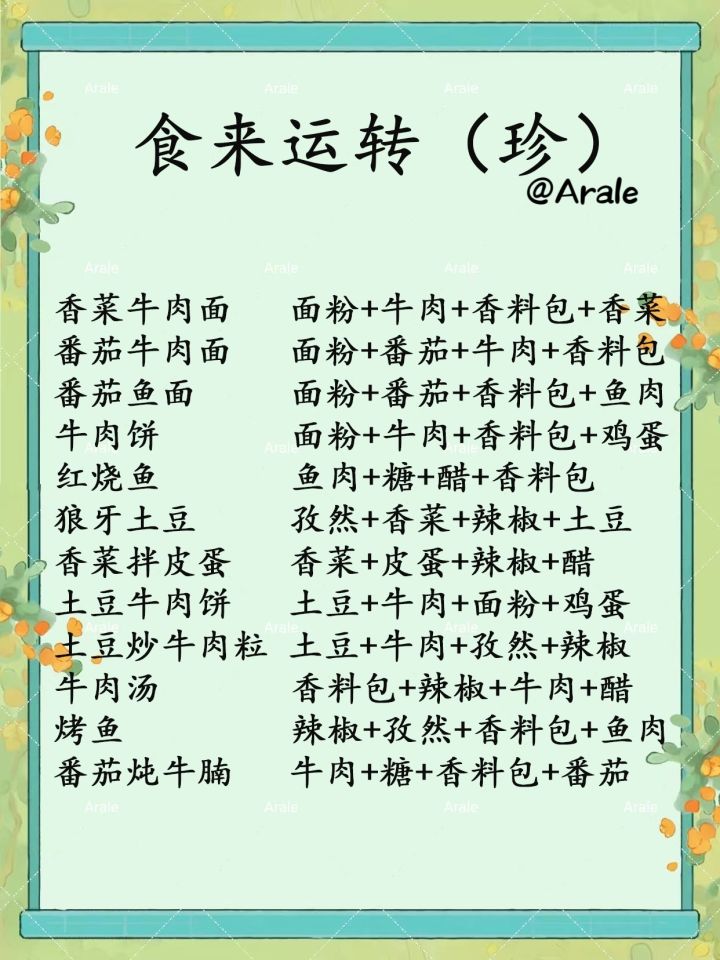 食来运转（珍）
@Arale
香菜牛肉面 面粉+牛肉+香料包+香菜
番茄牛肉面 面粉+番茄+牛肉+香料包
番茄鱼面 面粉+番茄+香料包+鱼肉
牛肉饼 面粉+牛肉+香料包+鸡蛋
红烧鱼 鱼肉+糖+醋+香料包
狼牙土豆 孜然+香菜+辣椒+土豆
香菜拌皮蛋 香菜+皮蛋+辣椒+醋
土豆牛肉饼 土豆+牛肉+面粉+鸡蛋
土豆炒牛肉粒 土豆+牛肉+孜然+辣椒
牛肉汤 香料包+辣椒+牛肉+醋
烤鱼 辣椒+孜然+香料包+鱼肉
番茄炖牛腩 牛肉+糖+香料包+番茄